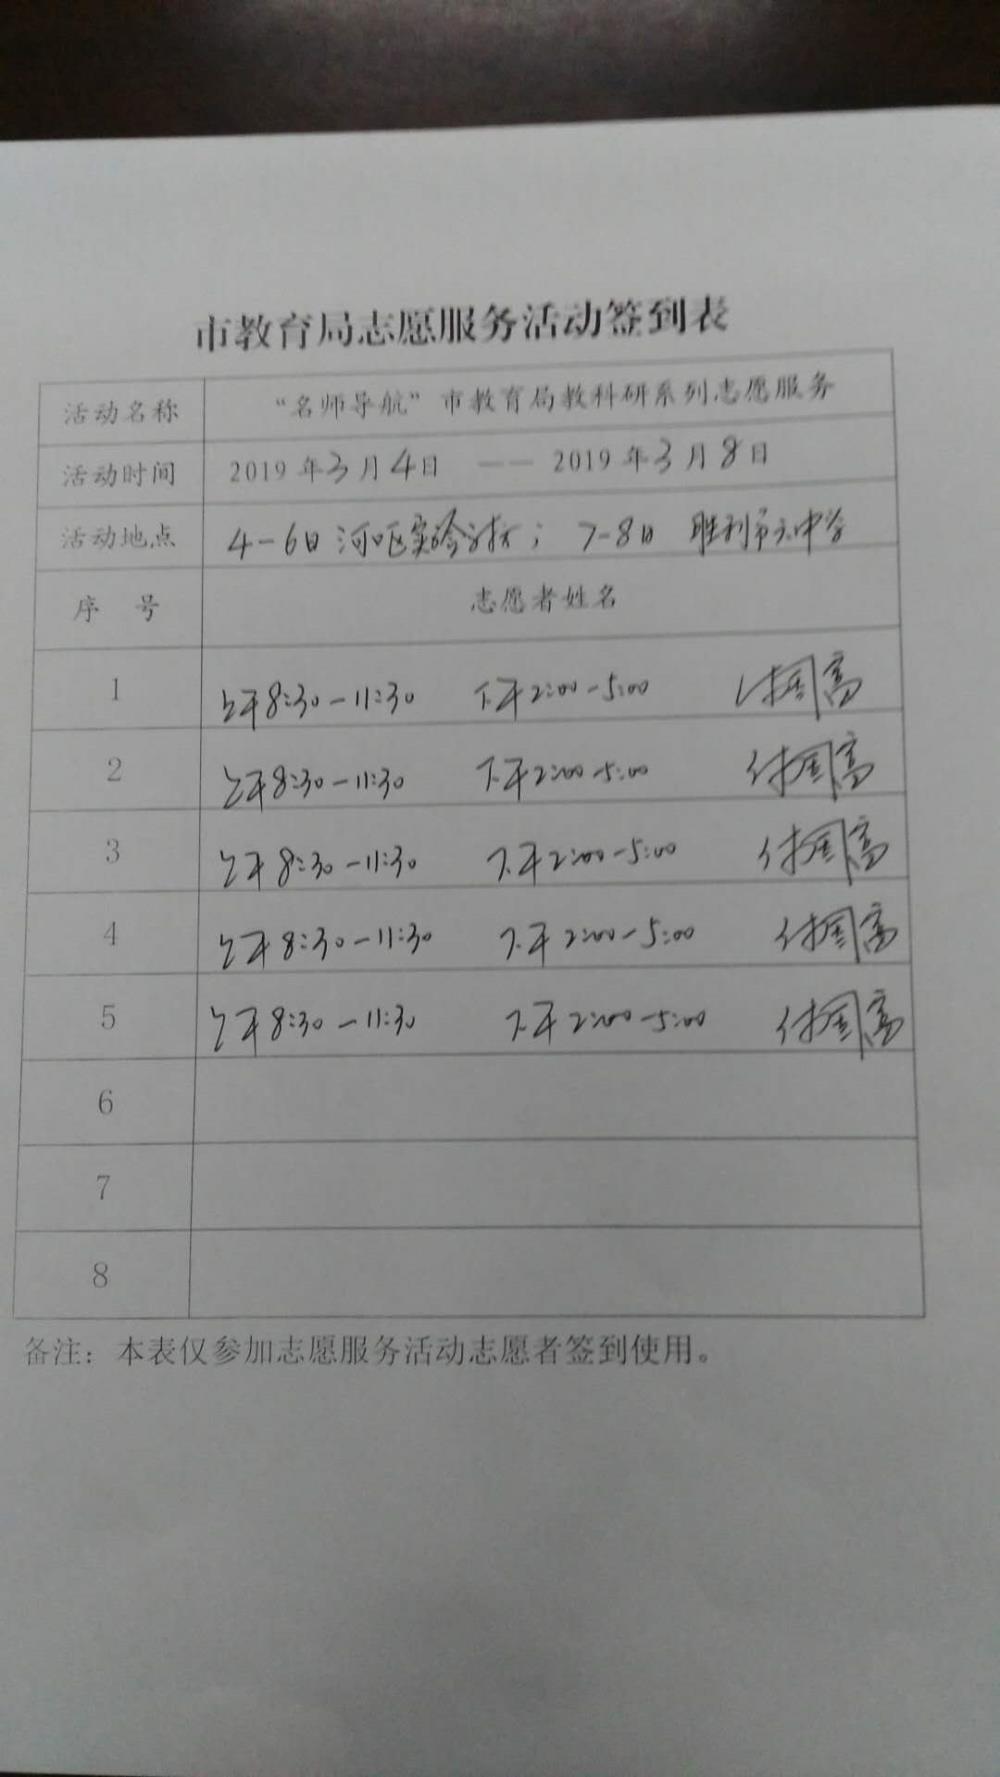 市教育局志愿服务活动签到表
活动名称 “名师导航”市教育局教科研系列志愿服务
活动时间 2019年3月4日 —— 2019年3月8日
活动地点 4-6日 河口区实验学校； 7-8日 胜利第六中学
序 号 志愿者姓名
1 上午8:30-11:30 下午2:00-5:00 付国高
2 上午8:30-11:30 下午2:00-5:00 付国高
3 上午8:30-11:30 下午2:00-5:00 付国高
4 上午8:30-11:30 下午2:00-5:00 付国高
5 上午8:30-11:30 下午2:00-5:00 付国高
6
7
8
备注：本表仅参加志愿服务活动志愿者签到使用。